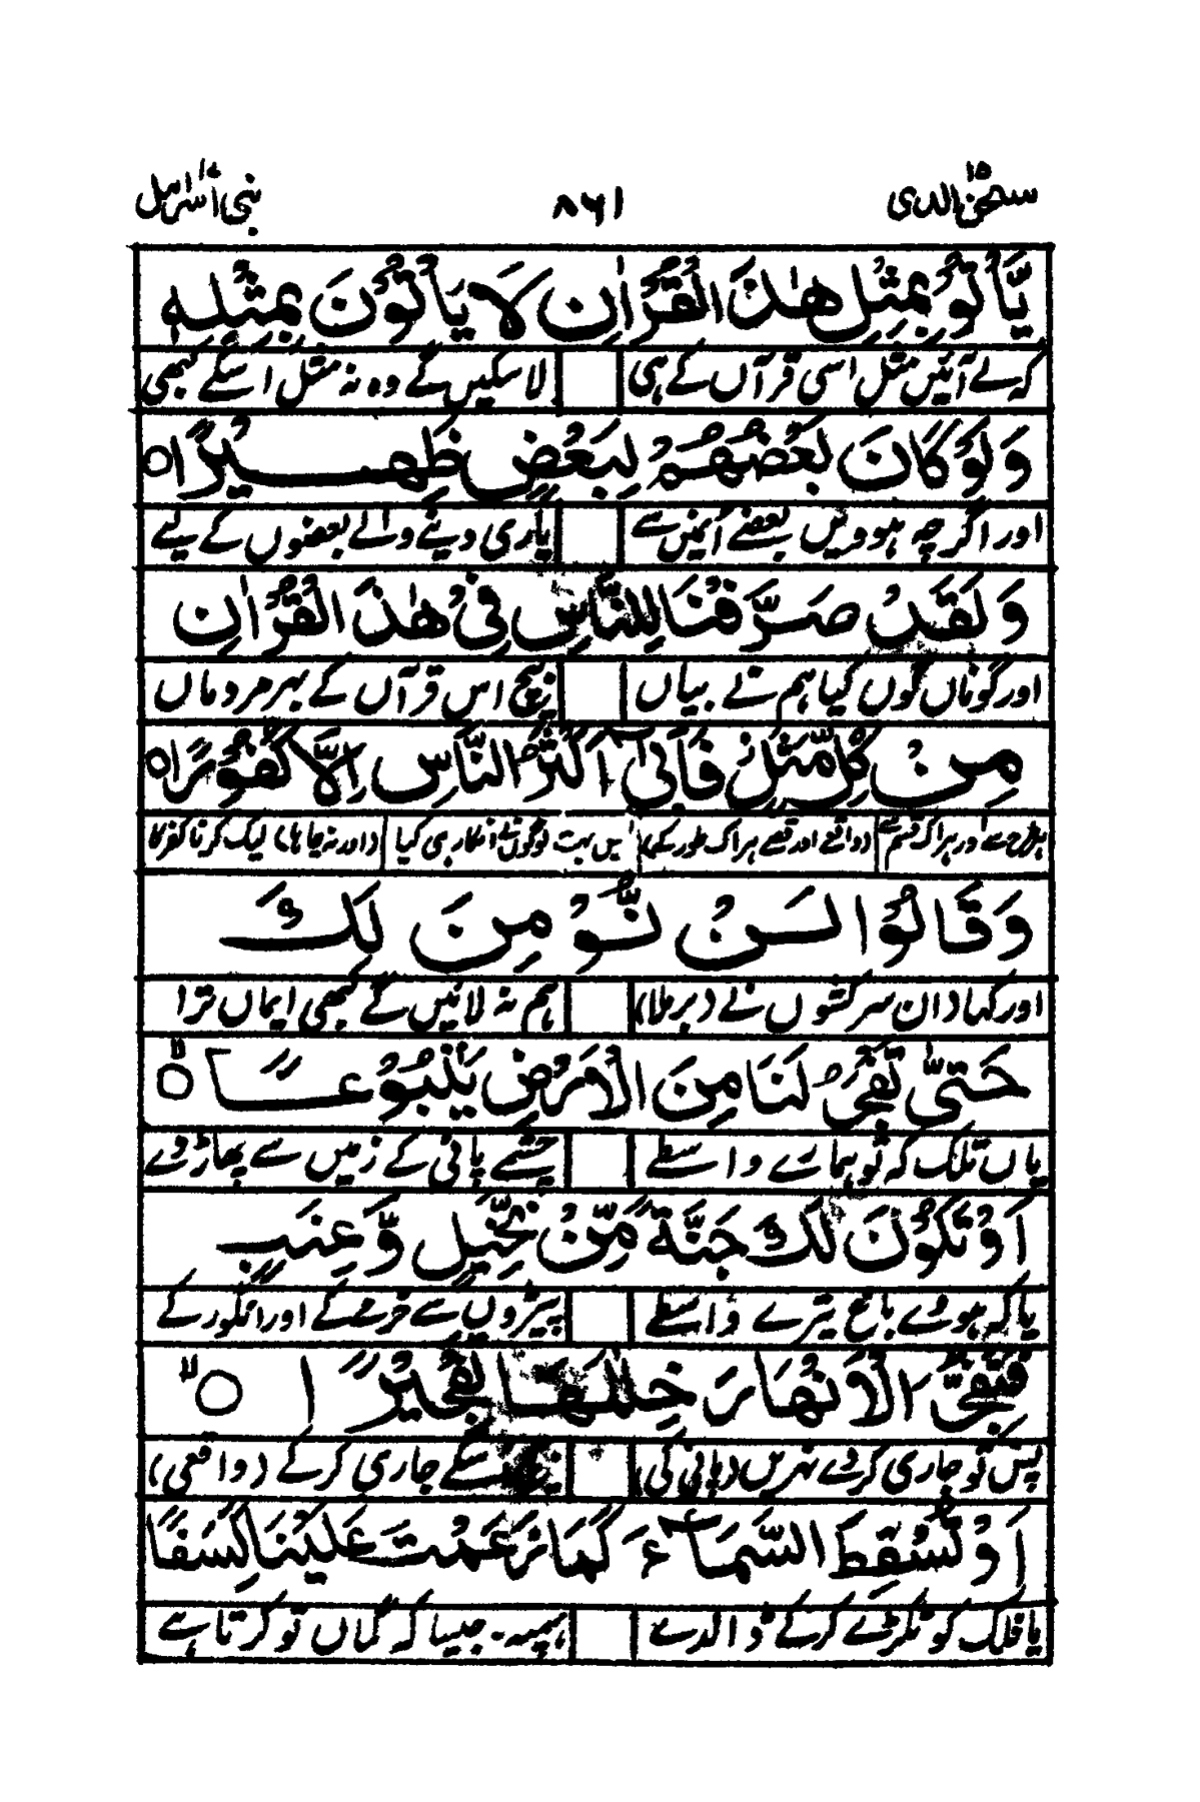 سبحٰن الذی ۱۵ ۸۶۱ بنی اسرائیل ۱۷
يَّاْتُوْا بِمِثْلِ هٰذَا الْقُرْاٰنِ لَا يَاْتُوْنَ بِمِثْلِهٖ
کہ لے آئیں مثل اسی قرآں کے ہی لا سکیں گے وہ نہ مثل اسکے کبھی
وَلَوْ كَانَ بَعْضُهُمْ لِبَعْضٍ ظَهِيْرًا ○
اور اگرچہ ہوویں بعضے اُنمیں سے یاری دینے والے بعضوں کے لیے
وَلَقَدْ صَرَّفْنَا لِلنَّاسِ فِيْ هٰذَا الْقُرْاٰنِ
اور گوناں گوں کیا ہم نے بیاں بیچ اس قرآں کے بہر مردماں
مِنْ كُلِّ مَثَلٍ فَاَبٰٓى اَكْثَرُ النَّاسِ اِلَّا كُفُوْرًا ○
ہر طرح سے اور ہر اک قسم سے (واقعے اور قصے ہر اک طور کے) یں بہت لوگوں نے انکار ہی کیا (اور نہ چاہا) لیک کرنا کفر کا
وَقَالُوْا لَنْ نُّؤْمِنَ لَكَ
اور کہا (ان سرکشوں نے (برملا) ہم نہ لائیں گے کبھی ایماں ترا
حَتّٰى تَفْجُرَ لَنَا مِنَ الْاَرْضِ يَنْۢبُوْعًا ○
یاں تلک کہ تو ہمارے واسطے چشمے پانی کے زمیں سے پھاڑ دے
اَوْ تَكُوْنَ لَكَ جَنَّةٌ مِّنْ نَّخِيْلٍ وَّعِنَبٍ
یا کہ ہووے باغ تیرے واسطے پیڑوں سے خرمے کے اور انگور کے
فَتُفَجِّرَ الْاَنْهَارَ خِلٰلَهَا تَفْجِيْرًا ○
پس تو جاری کر دے نہریں (پانی کی) بیچ اسکے جاری کر کے (واقعی)
اَوْ تُسْقِطَ السَّمَآءَ كَمَا زَعَمْتَ عَلَيْنَا كِسَفًا
یا فلک کو ٹکڑے کر کے ڈالدے ہمپہ۔ جیسا کہ گماں تو کرتا ہے